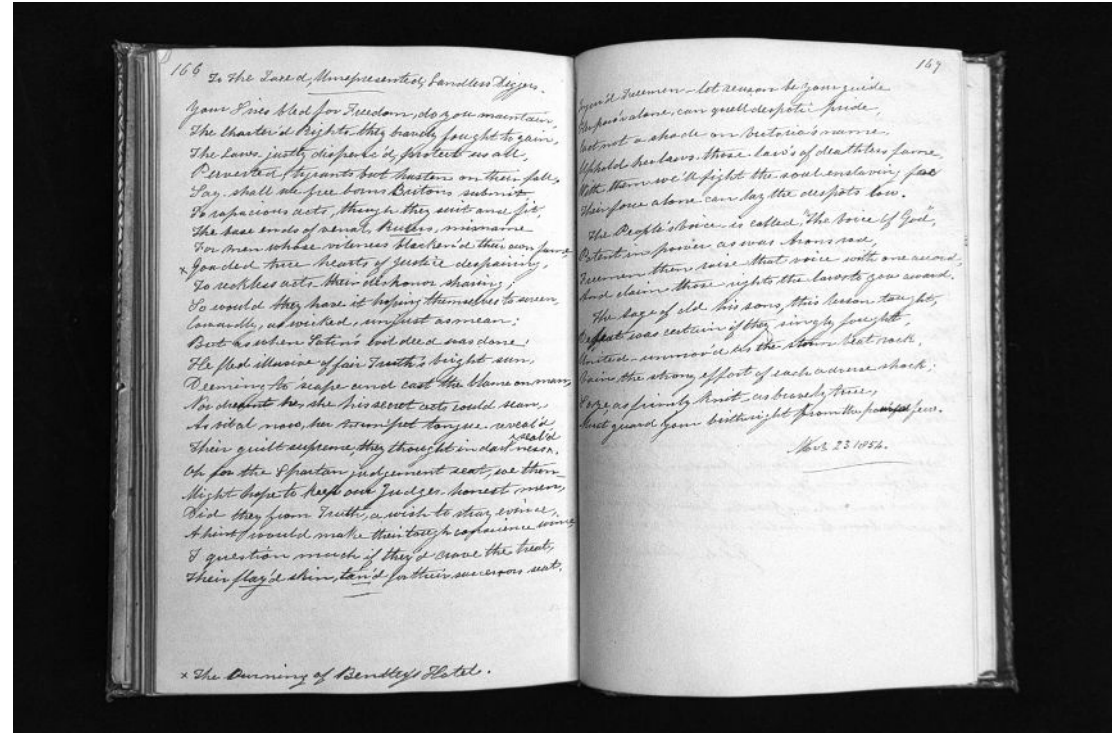 166
To the Taxed, Unrepresented, Landless Diggers.
Your Sires bled for Freedom, do you maintain,
The Charter'd Rights they bravely fought to gain,
The Laws justly dispens'd, protect us all,
Perverted tyrants but hastens on their fall,
Say, shall we free born Britons submit
To rapacious acts, though they suit and fit,
The base ends of venal, Rulers, misname
For men whose vileness blacken'd their own fame
x Goaded true hearts of justice despairing,
To reckless acts their dishonor sharing;
So would they have it hoping themselves to screen,
Cowardly, as wicked, unjust as mean;
But as when Satin's evil deed was done
He fled illusive of fair Truth's bright sun,
Deeming to scape and cast the blame on man,
Nor dreamt he, she his secret acts could scan,
As vital now, her trumpet tongue reveal'd
Their guilt supreme, they thought in darkness seal'd
Oh for the Spartan judgement seat, we then
Might hope to keep our Judges honest men,
Did they from Truth, a wish to stray evince,
A hint would make their tough conscience wince
I question much if they'd crave the treat,
Their flay'd skin, tan'd for their successors seat.
x The Burning of Bentley's Hotel.
167
Freemen let reason be your guide
alone, can quell despotic pride,
Cast not a shade on Victoria's name,
Uphold her laws those law's of deathless fame,
With them we'll fight the soul enslaving foe
Their force alone can lay the despots low.
The People's voice is called, "The Voice of God",
Potent in power as was Arons rod,
Freemen then raise that voice with one accord,
And claim those rights the laws to you award.
The Sage of old his sons, this lesson taught,
Defeat was certain if they singly fought,
United unmov'd as the storm beat rock,
Vain, the strong effort of each adverse shock;
as firmly knit as bravely true,
guard your birthright from the powerful few.
Nov. 23 1854.